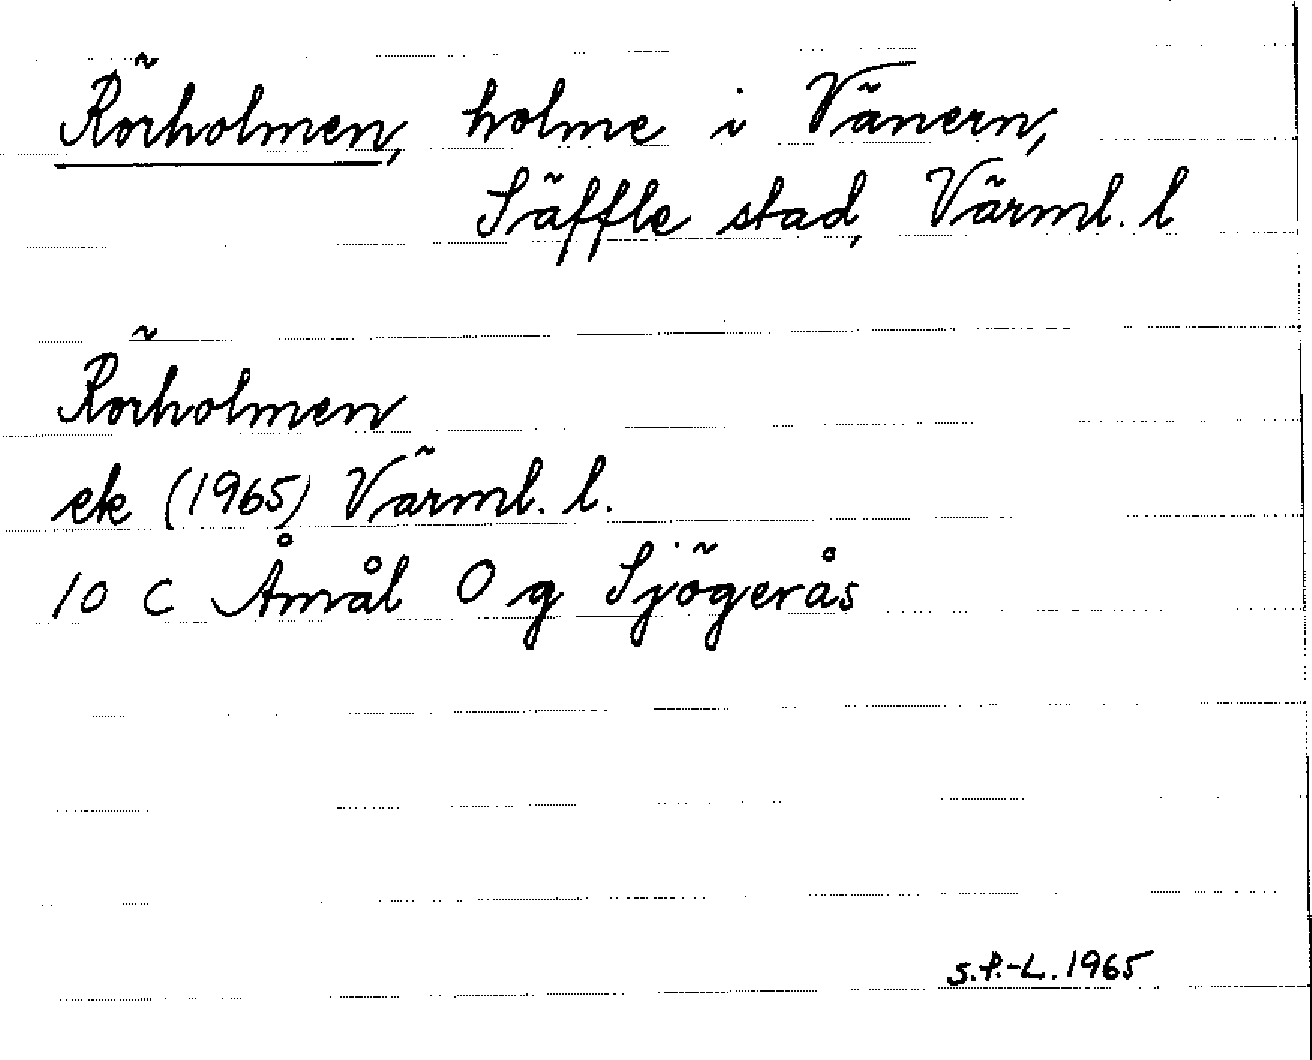 Rörholmen, holme i Vänern,
Säffle stad, Värml. l
Rörholmen
ek (1965) Värml. l.
10 C Åmål O g Sjögerås
S.P.-L. 1965